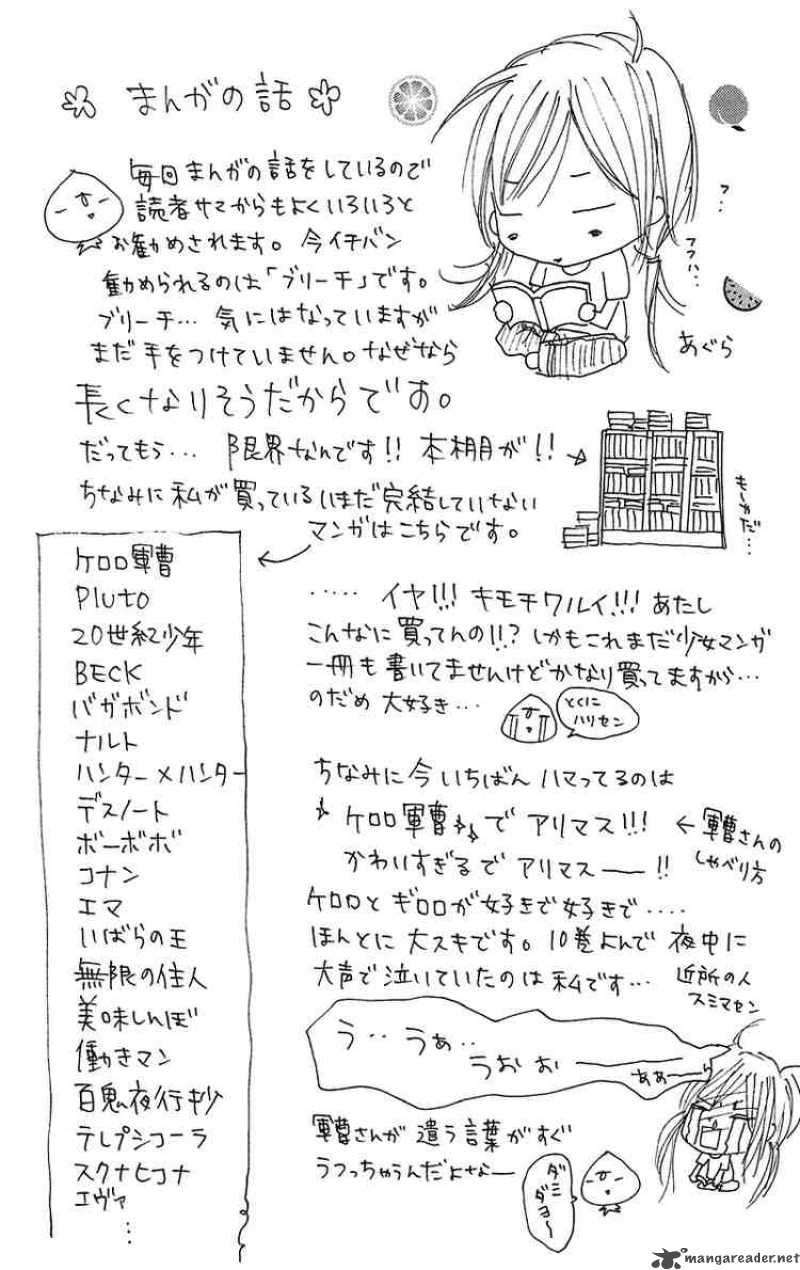 まんがの話
毎回まんがの話をしているので
読者サマからもよくいろいろと
お勧めされます。今イチバン
勧められるのは「ブリーチ」です。
ブリーチ… 気にはなっていますが
まだ手をつけていません。なぜなら
長くなりそうだからです。
だってもう… 限界なんです!! 本棚が!!
ちなみに私が買っているいまだ完結していない
マンガはこちらです。
フ…
フフハ…
あぐら
ケロロ軍曹
Pluto
20世紀少年
BECK
バガボンド
ナルト
ハンター×ハンター
デスノート
ボーボボ
コナン
エマ
いばらの王
無限の住人
美味しんぼ
働きマン
百鬼夜行抄
テレプシコーラ
スクナヒコナ
エヴァ
⋮
‥‥‥ イヤ!!! キモチワルイ!!! あたし
こんなに買ってんの!!? しかもこれまだ少女マンガ
一冊も書いてませんけどかなり買ってますから…
のだめ 大好き…
とくに
ハリセン
ちなみに今いちばんハマってるのは
ケロロ軍曹でアリマス!!!
←軍曹さんの
しゃべり方
かわいすぎるでアリマスー!!
ケロロとギロロが好きで好きで‥‥
ほんとに大スキです。10巻よんで夜中に
大声で泣いていたのは私です…
近所の人
スミマセン
う‥うぁ‥
うおおー
ああーー
軍曹さんが遣う言葉がすぐ
うつっちゃうんだよなー
ダミ
ダヨ〜
mangareader.net